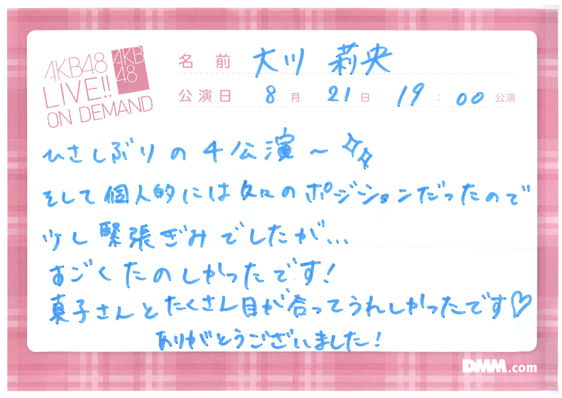 AKB48
LIVE!!
ON DEMAND
AKB
48
名前 大川 莉央
公演日 8月 21日 19:00 公演
ひさしぶりの4公演〜✨
そして個人的には久々のポジションだったので
少し緊張ぎみでしたが...
すごくたのしかったです!
真子さんとたくさん目が合ってうれしかったです♡
ありがとうございました!
DMM.com